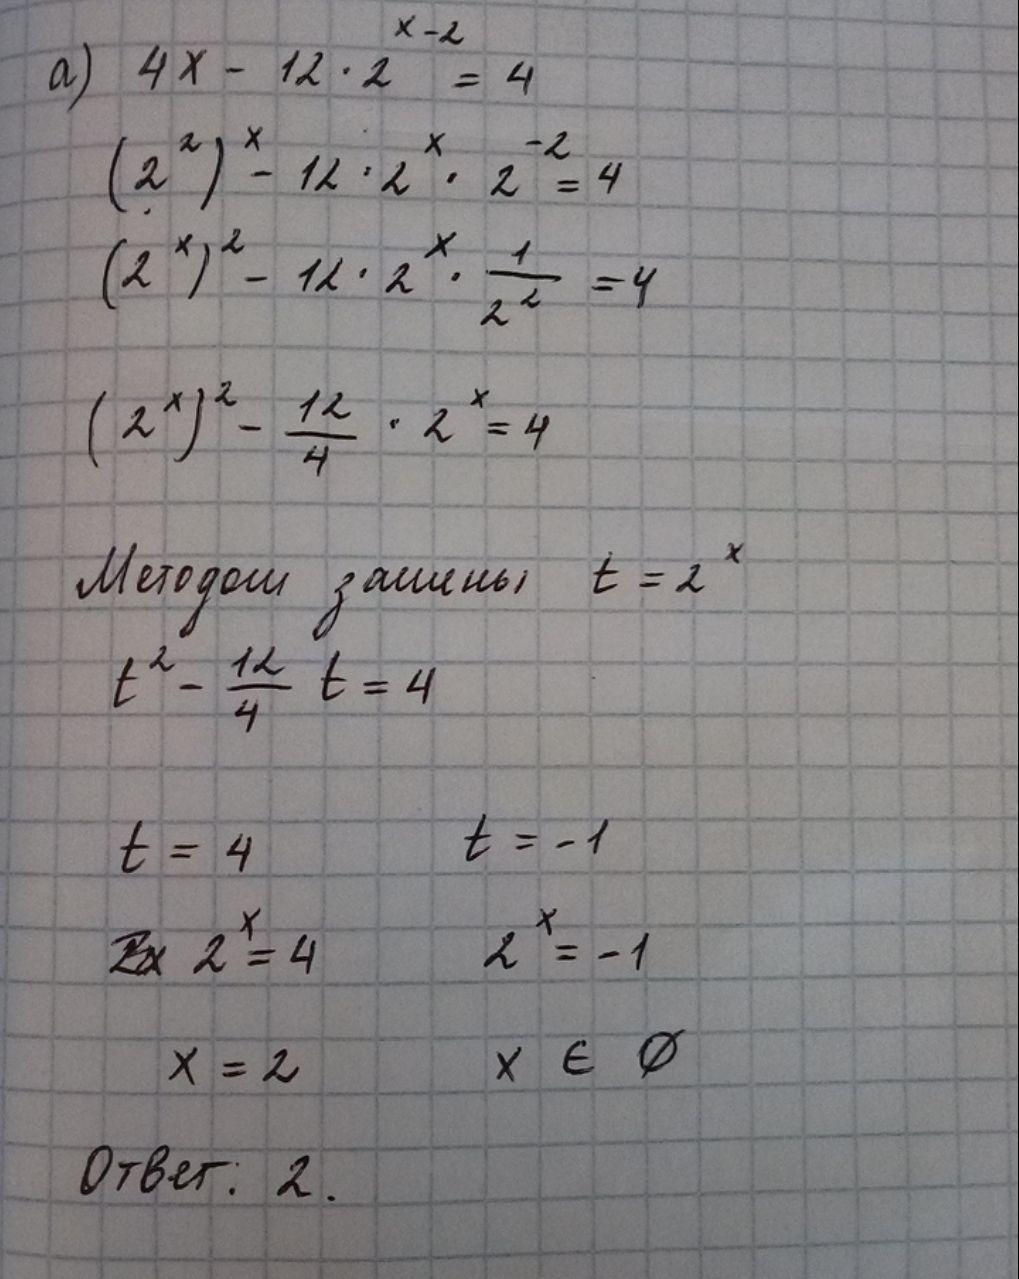 а) 4x - 12 · 2^{x-2} = 4
(2^2)^x - 12 · 2^x · 2^{-2} = 4
(2^x)^2 - 12 · 2^x · 1/2^2 = 4
(2^x)^2 - 12/4 · 2^x = 4
Методом замены t = 2^x
t^2 - 12/4 t = 4
t = 4 t = -1
2^x = 4 2^x = -1
x = 2 x ∈ ∅
Ответ: 2.